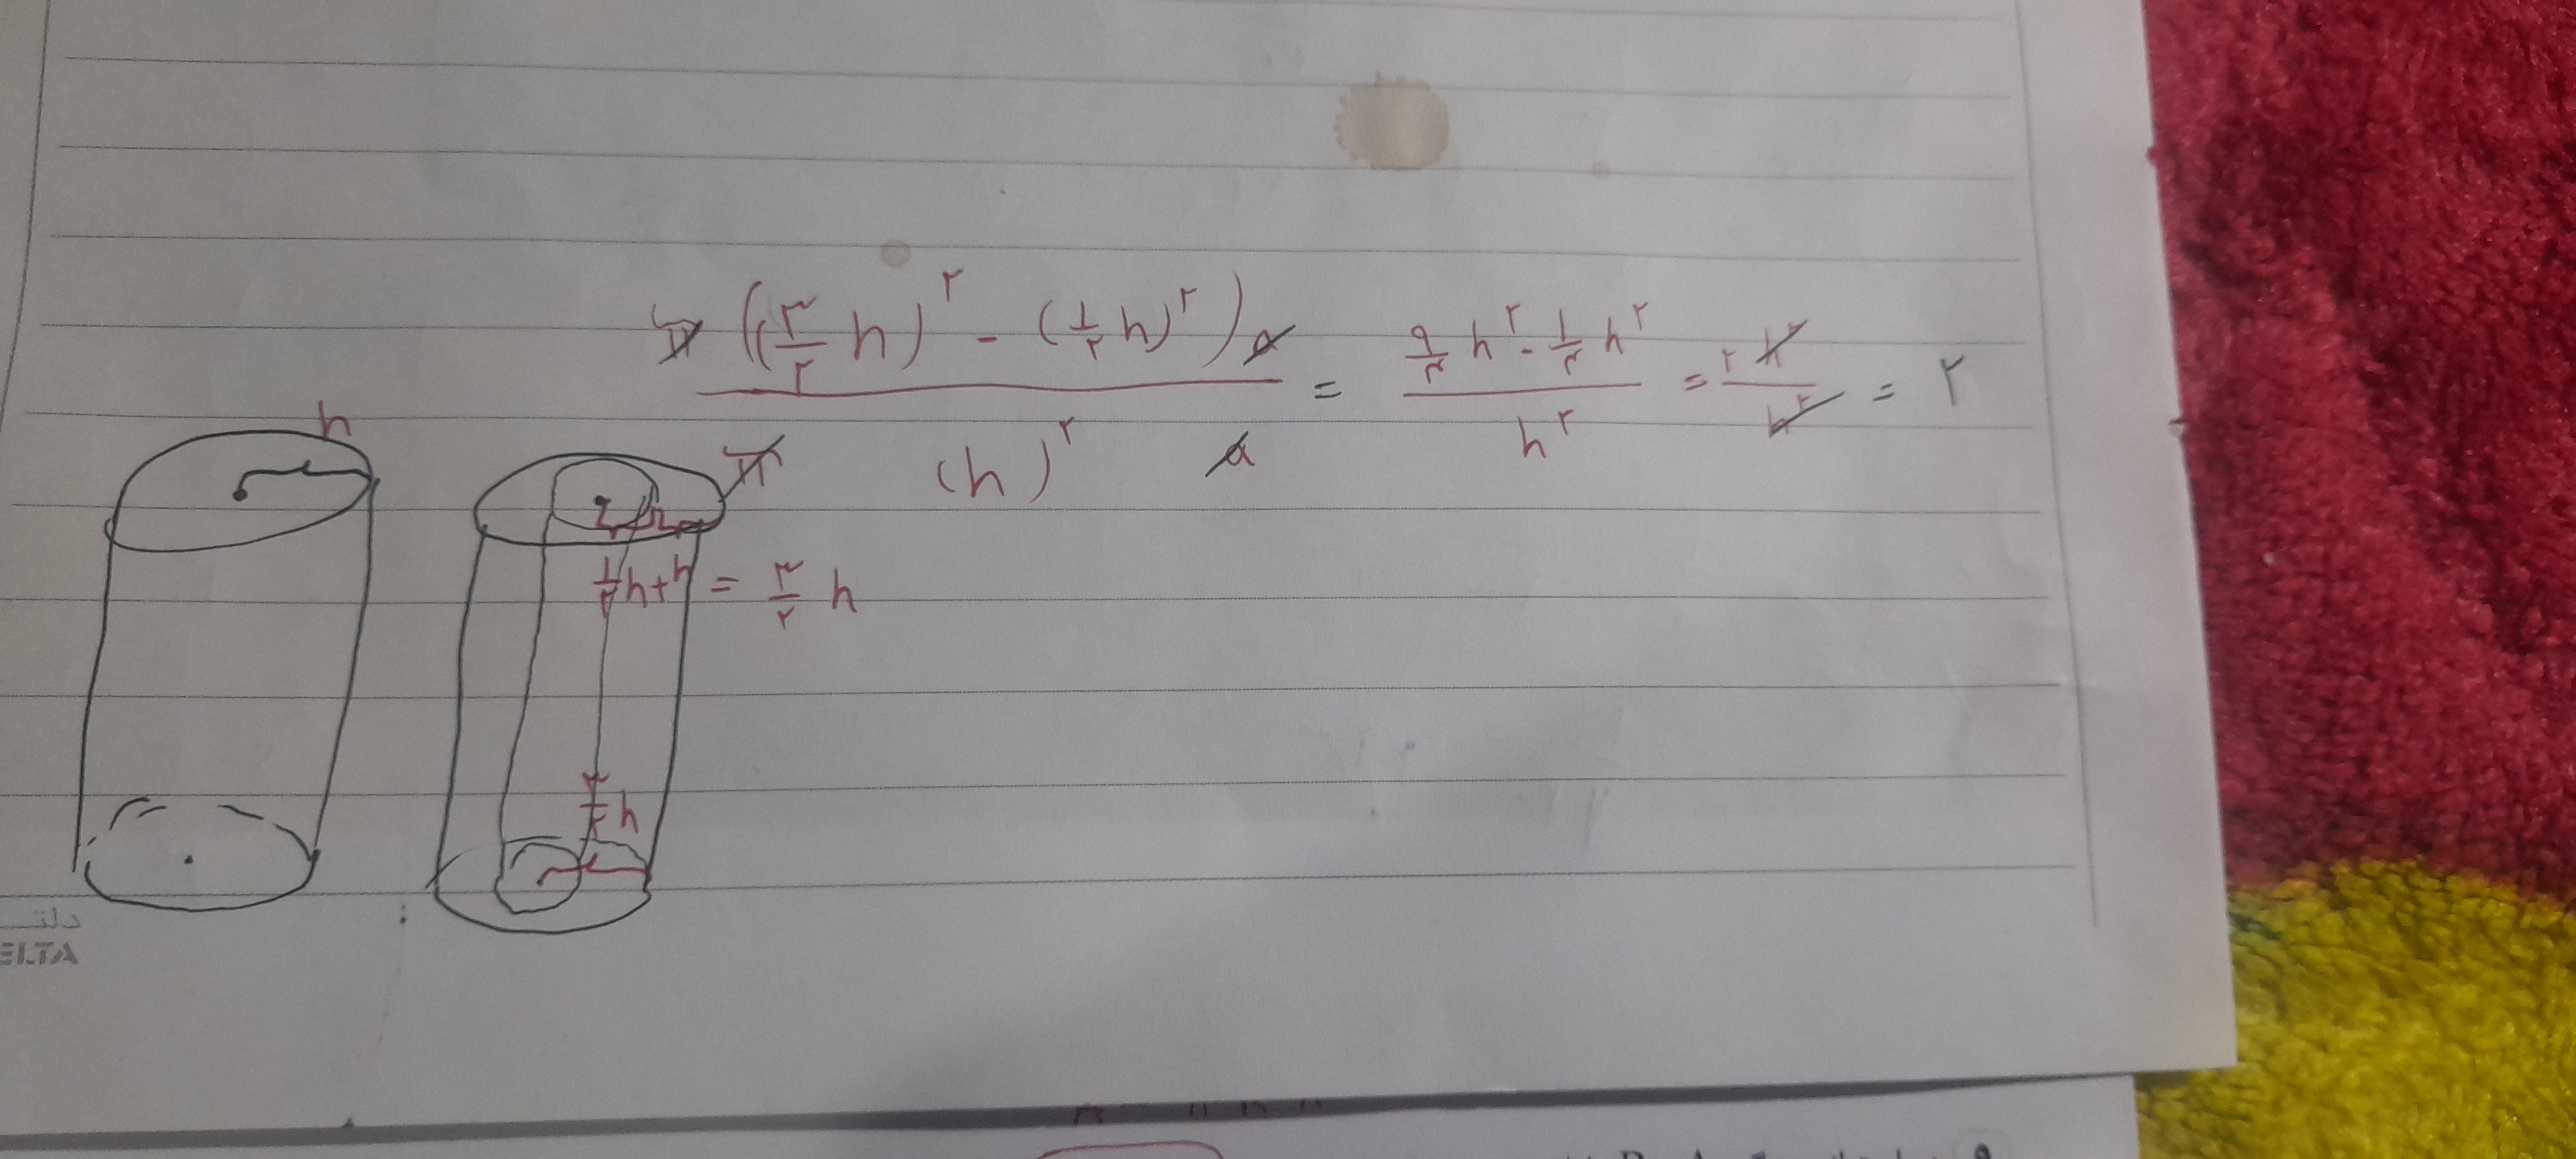 π ((۳/۲ h)^۲ - (۱/۲ h)^۲) a / π (h)^۲ a = (۹/۴ h^۲ - ۱/۴ h^۲) / h^۲ = ۲ h^۲ / h^۲ = ۲
h
۱/۲ h + h = ۳/۲ h
۳/۲ h
دلتـ
ELTA